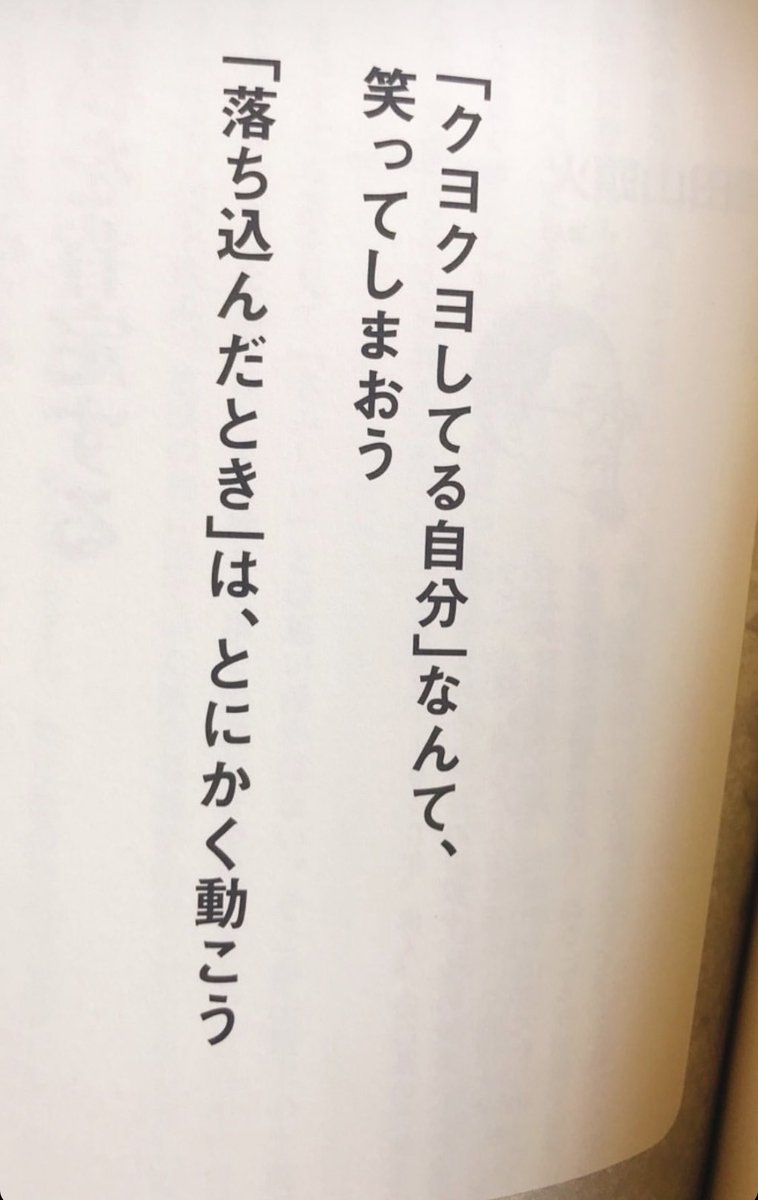 「クヨクヨしてる自分」なんて、
笑ってしまおう
「落ち込んだとき」は、とにかく動こう